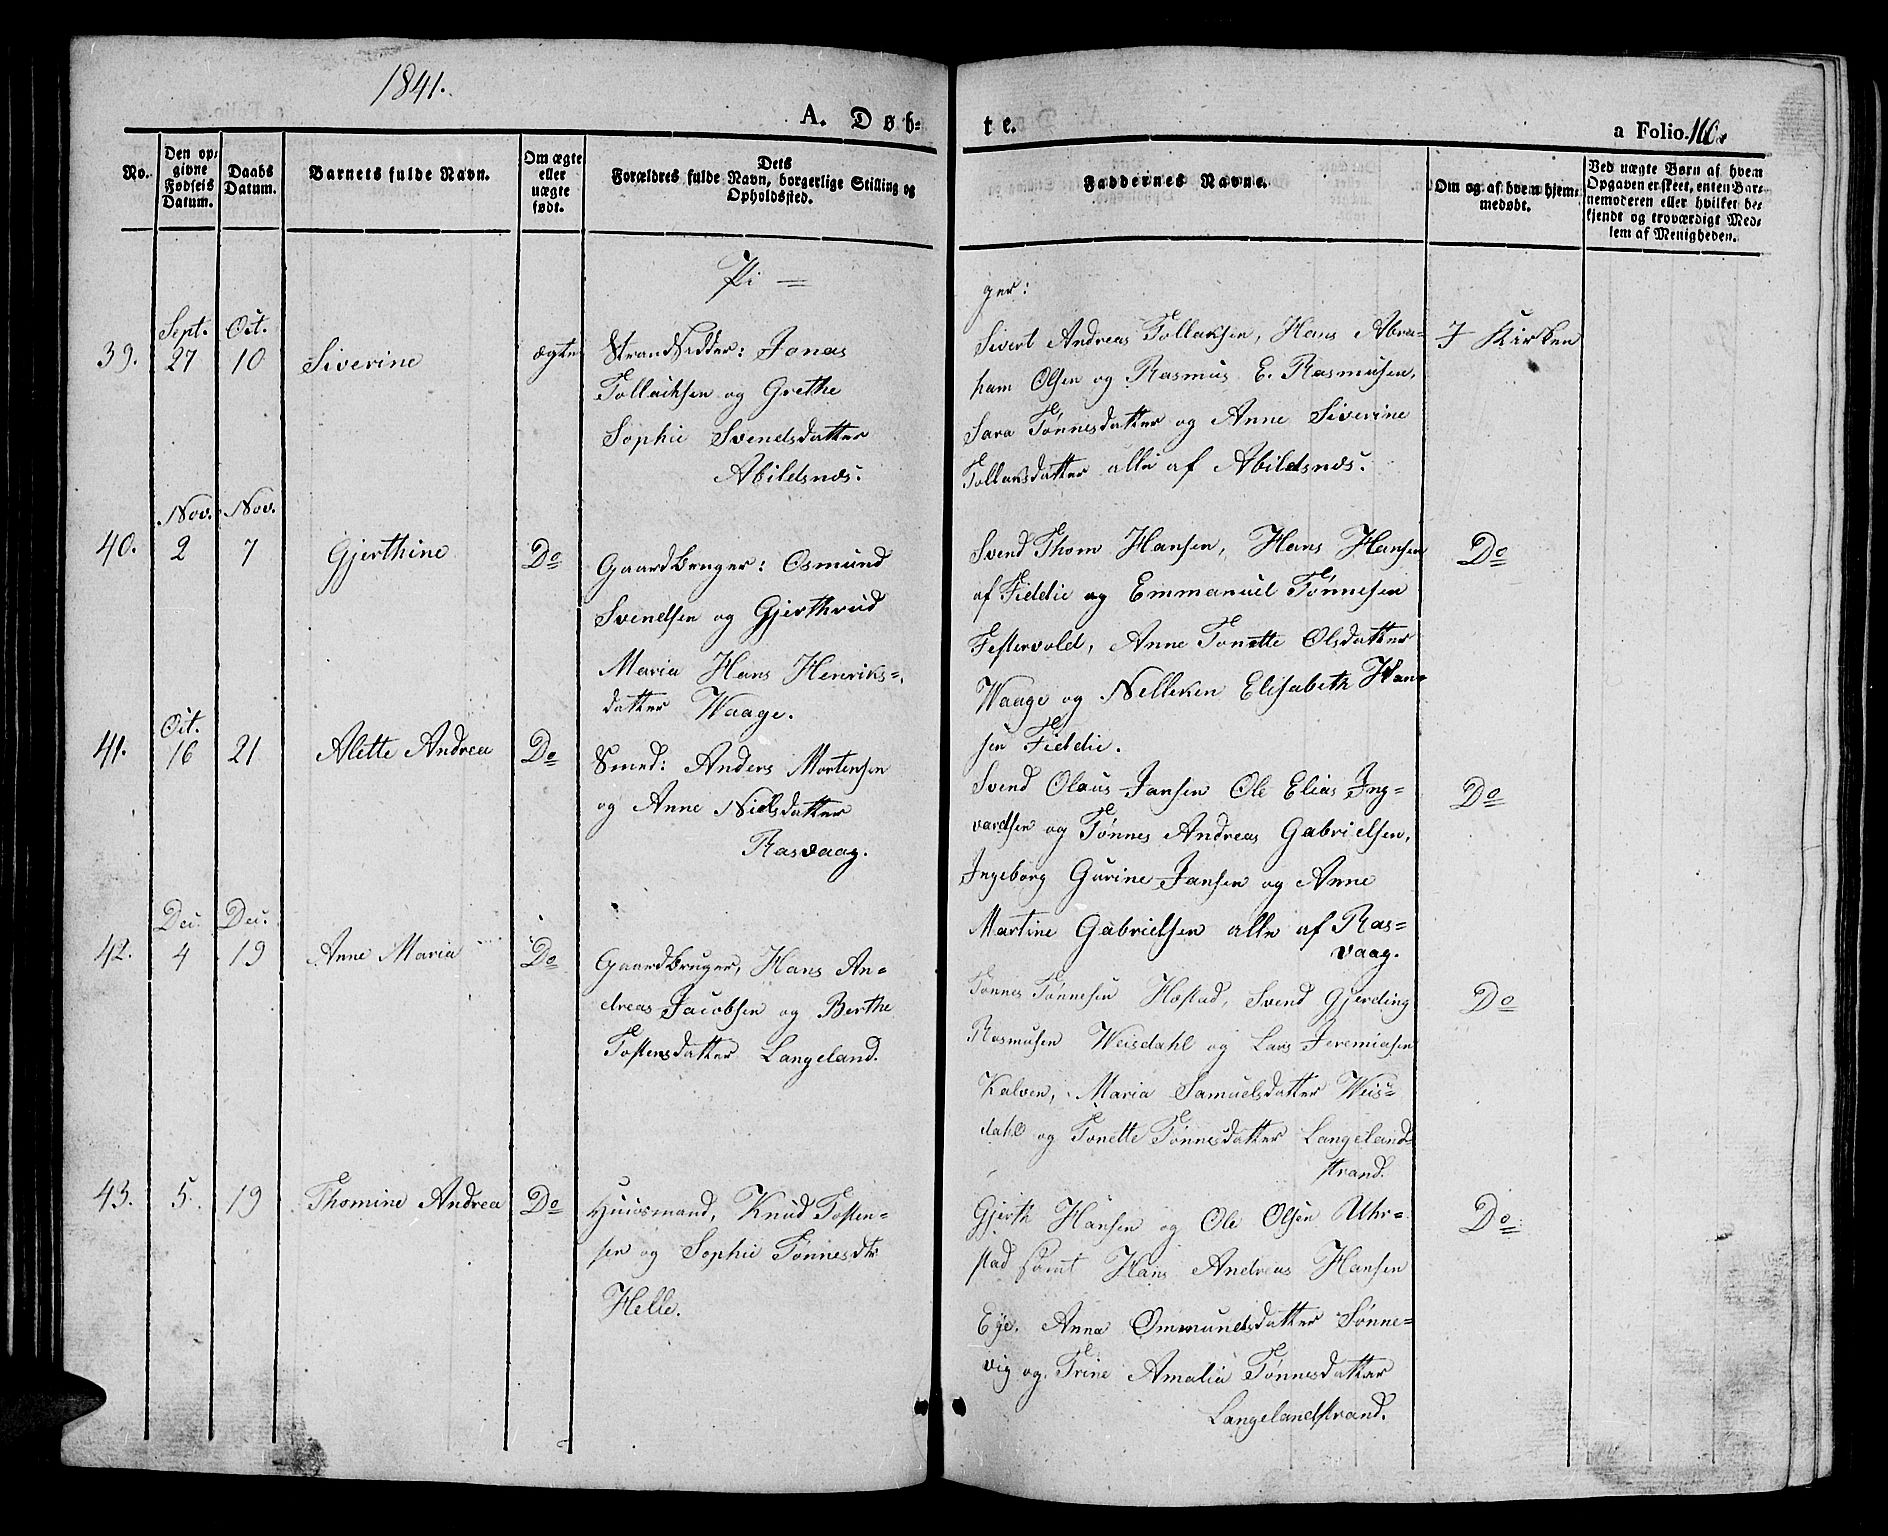 1841.
A. Døb-
te.
a Folio. 110.
No.
Den op-
givne
Fødsels
Datum.
Daabs
Datum.
Barnets fulde Navn.
Om ægte
eller
uægte
født.
Dets
Forældres fulde Navn, borgerlige Stilling og
Opholdssted.
Faddernes Navne.
Om og af hvem hjem-
medøbt.
Ved uægte Børn af hvem
Opgaven er skeet, enten Bar-
nemoderen eller hvilket be-
kjendt og troværdigt Med-
lem af Menigheden.
Pi =
ger:
39.
Sept.
27
Oct.
10
Siverine
ægte
Strandsidder: Jonas
Tollacksen og Grethe
Sophie Svendsdatter
Abildsnæs.
Sivert Andreas Tollaksen, Hans Abra-
ham Olsen og Rasmus E. Rasmusen,
Sara Tønnesdatter og Anne Siverine
Tollaksdatter alle af Abildsnæs.
I Kirken
40.
Nov.
2
Nov.
7
Gjerthine
Do
Gaardbruger: Osmund
Svendsen og Gjerthrud
Maria Hans Henriks-
datter Waage.
Svend Thom Hansen, Hans Hansen
af Fiddie og Emmanuel Tønnesen
Festervold, Anne Tonette Olsdatter
Waage og Nelleken Elisabeth Han-
sen Fiddie.
Do
41.
Oct.
16
21
Alette Andrea
Do
Smed: Anders Mortensen
og Anne Nielsdatter
Rasvaag.
Svend Olaus Jansen Ole Elias Ing-
vardsen og Tønnes Andreas Gabrielsen,
Ingeborg Gurine Jansen og Anne
Martine Gabrielsen alle af Ras-
vaag.
Do
42.
Dec.
4
Dec.
19
Anne Maria
Do
Gaardbruger, Hans An-
dreas Jacobsen og Berthe
Tostensdatter Langeland.
Tønnes Tønnesen Høstad, Svend Gjerding
Rasmusen Weisdahl og Lars Jeremiasen
Kalven, Maria Samuelsdatter Weis-
dahl og Tonette Tønnesdatter Langeland
strand.
Do
43.
5.
19
Thomine Andrea
Do
Huusmand, Knud Tosten-
sen og Sophie Tønnesdtr
Helle.
Gjerth Hansen og Ole Olsen Uhr-
stad samt Hans Andreas Hansen
Eye. Anna Ommundsdatter Sønne-
vig og Trine Amalia Tønnesdatter
Langelandstrand.
Do